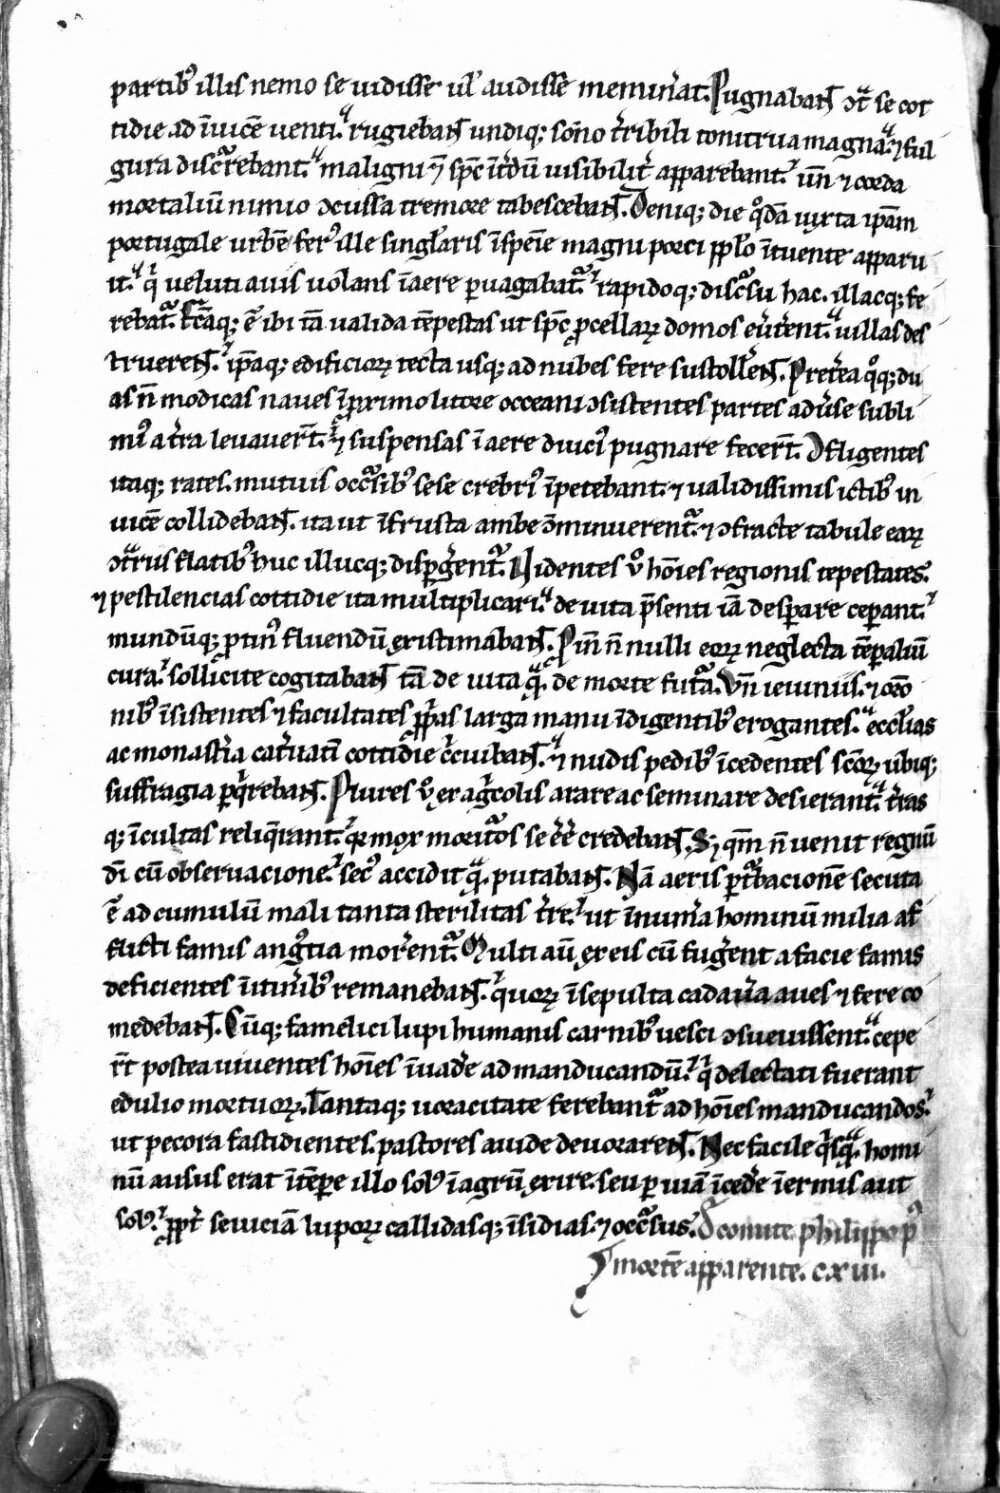 partib᷒ illis nemo se uidisse ul̛ audisse memin̛at. Pugnabant̄ ↄt̄ se cot
tidie ad īuicē uenti. rugiebant̄ undiq; sono t̛ribili tonitrua magna. ⁊ ful
gura discurrebant. maligni ⁊̄ sp̄c īt̛dū uisibilit̛ apparebant. un̄ ⁊ corda
mortaliū nimio ↄcussa tremore tabescebant̄. Deniq; die q̊dā iuxta ip̄am
portugale urbē fer᷒ ille singl̛aris ī speīe magni porci pp̄lo ītuente apparu
it. q̇ ueluti auis uolans ī aere puagabat᷑. rapidoq; discͥsu hac. illacq; fe
rebat᷑. fcāq; ē ibi tā ualida tēpestas ut sp̄c pcellaꝝ domos eưtent. uillas des
truerent̄. ip̄aq; edificioꝝ tecta usq; ad nubes fere sustoll̛ent̄. Pret̛ea q̊q; du
as n̄ modicas naues ī proximo litore occeani ↄsistentes partes adưse subli
mi᷒ a t̛ra leuauer̄t. ⁊ suspensas ī aere diuci᷒ pugnare fecer̄t. Ↄfligentes
itaq; rates. mutuis occͥsib᷒ sese crebri᷒ īpetebant. ⁊ ualidissimis ictib᷒ in
uicē collidebant̄. ita ut ī frusta ambe ↄminuerent᷑. ⁊ ↄfracte tabule eaꝝ
ↄt̄riis flatib᷒ huc illucq; disp̛gent᷑. Uidentes ů hōies regionis tēpestates.
⁊ pestilencias cottidie ita multiplicari. de uita p̄senti iā despare ceperant.
mundūq; ptin᷒ fluendū existimabant̄. Pin̄ n̄ nulli eoꝝ neglecta tēpaliū
cura. sollicite cogitabant̄ tā de uita q̄. de morte futͣa. Un̄ ieiuniis. ⁊ oro
nib᷒ īsistentes ⁊ facultates pp̄as larga manu īdigentib᷒ erogantes. eccl̛ias
ac monast̛ia cat̛uati cottidie c̛cuibant̄. ⁊ nudis pedib᷒ īcedentes scōꝝ ubiq;
suffragia pq̇rebant̄. Plures ů ex ag̛colis arare ac seminare desierant. t̛ras
q; īcultas reliq̄rant. q̇ mox moritͥos se e̅e̅ credebant̄. S; qm̄ n̄ uenit regnū
dī cū obseruacione. sec᷒ accidit q̄. putabant̄. Nā aeris pt̛bacionē secuta
ē ad cumulū mali tanta sterilitas t̛re. ut īnum̛a hominum milia af
flicti famis angustia morerent᷑. Multi aū ex eis cū fug̛ent a facie famis
deficientes ī itin̛ib᷒ remanebant̄. quoꝝ īsepulta cadaưa aues ⁊ fere co
medebant̄. Cūq; famelici lupi humanis carnib᷒ uesci ↄsueuissent. cepe
r̄t postea uiuentes hōies īuade ad manducandū. q̇ delectati fuerant
edulio mortuoꝝ. Tantaq; uoracitate ferebant᷑ ad hōies manducandos.
ut pecora fastidientes. pastores auide deuorarent̄. Nec facile q̇sq̄. homi
nū ausus erat ī tēpe illo sol᷒ ī agrū exire. seu p uiā īcede īermis aut
sol᷒. ppt̛ seuiciā lupoꝝ callidasq; īsidias ⁊ occͥsus. D̄ comite philippo p᷒
mortē apparente. c.xiii.